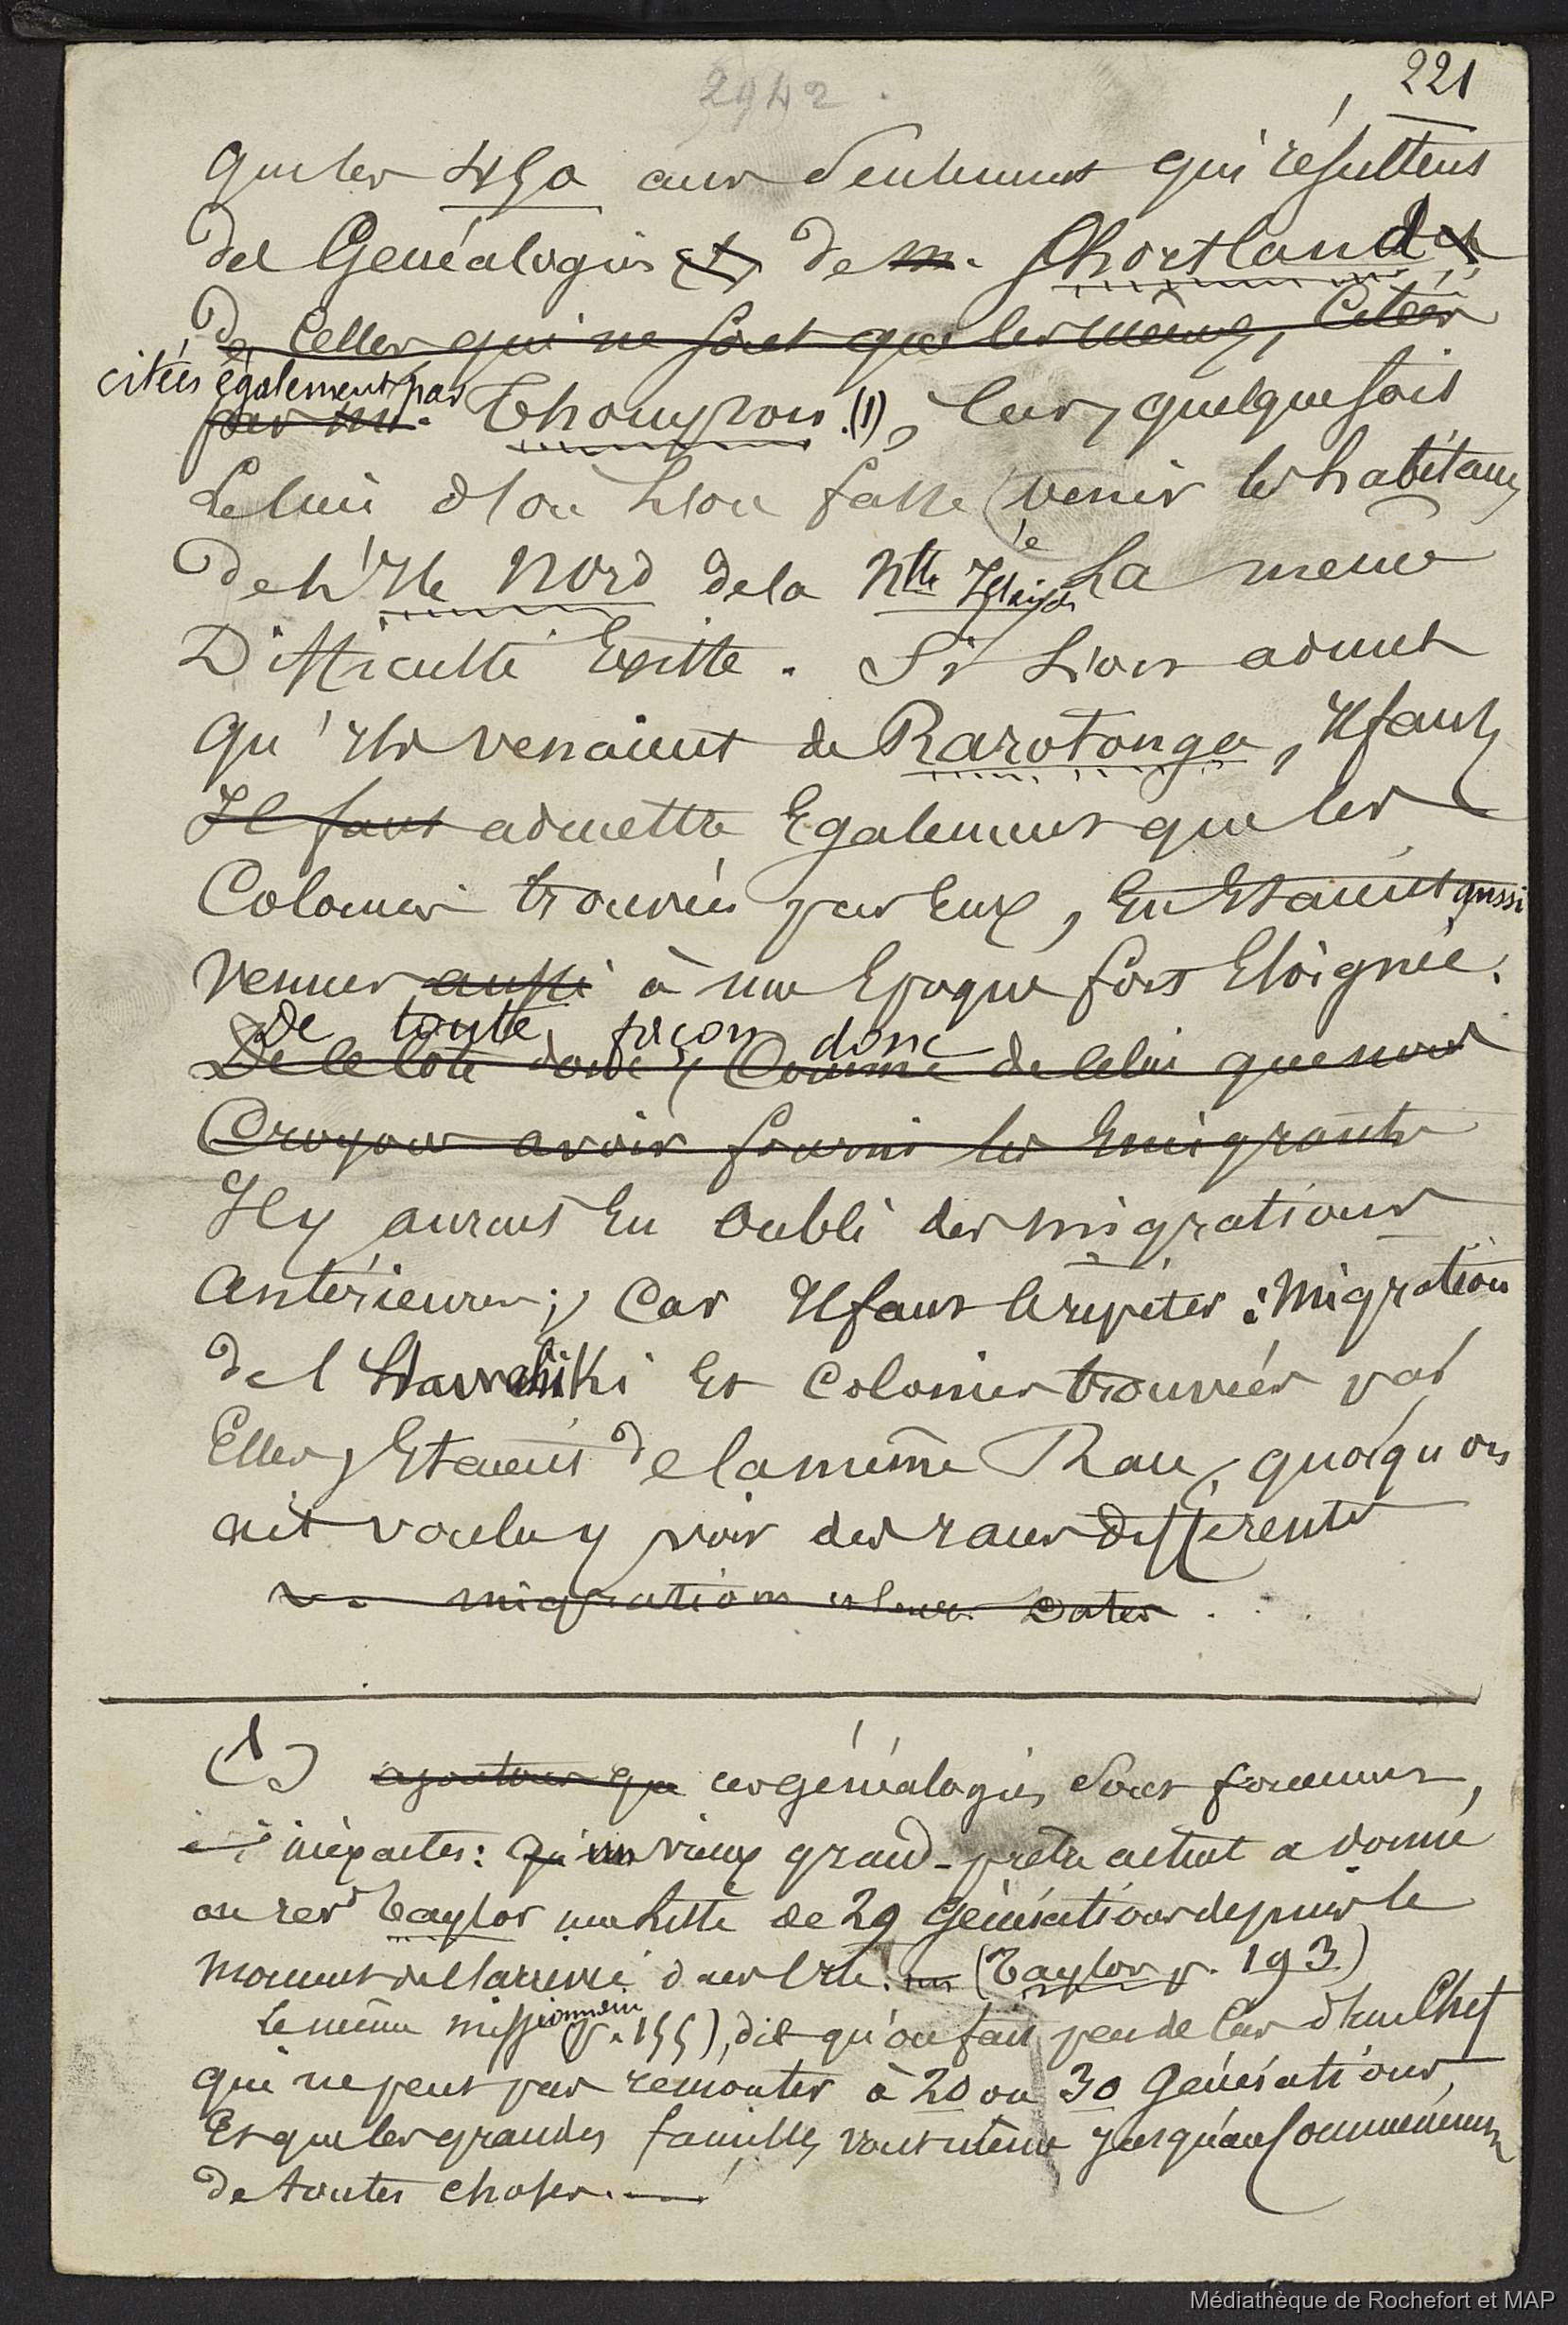 2942
221
que les 450 ans seulement qui résultent
des Généalogies et de m. Shortland et
de celles qui ne sont que les mêmes, citées
citées également par
par M. Thompson (1), Car, quelque soit
Celui d'où l'on fasse venir les habitans
de l'Ile Nord de la Nlle Zélande la meme
Difficulté Existe. Si l'on admet
qu'Ils venaient de Rarotonga, Il faut
Il faut admettre Egalement que les
Colonies trouvées par Eux, En Etaient aussi
venues aussi à une Epoque fort Eloignée.
De toute façon donc
De ce côté donc, Comme de celui que nous
Croyons avoir fourni les Emigrants
Il y aurait Eu oubli des migrations
Antérieures; Car Il faut le répéter: Migration
de l'Hawahiki Et Colonies trouvées par
Elles, Etaient de la même Race, quoiqu'on
ait voulu y voir des races differentes
migrations et leurs Dates
(1) ajoutons que ces généalogies sont souvent,
inéxactes: qu'un vieux grand-prêtre actuel a donné
au revd Taylor une liste de 29 Générations depuis le
moment de l'arrivée dans l'Ile. (Taylor p. 193)
Le même missionnaire (p. 155), dit qu'on fait peu de Cas d'un Chef
qui ne peut pas remonter à 20 ou 30 Générations,
Et que les grandes familles vont même jusqu'au Commencement
de toutes choses.
Médiathèque de Rochefort et MAP